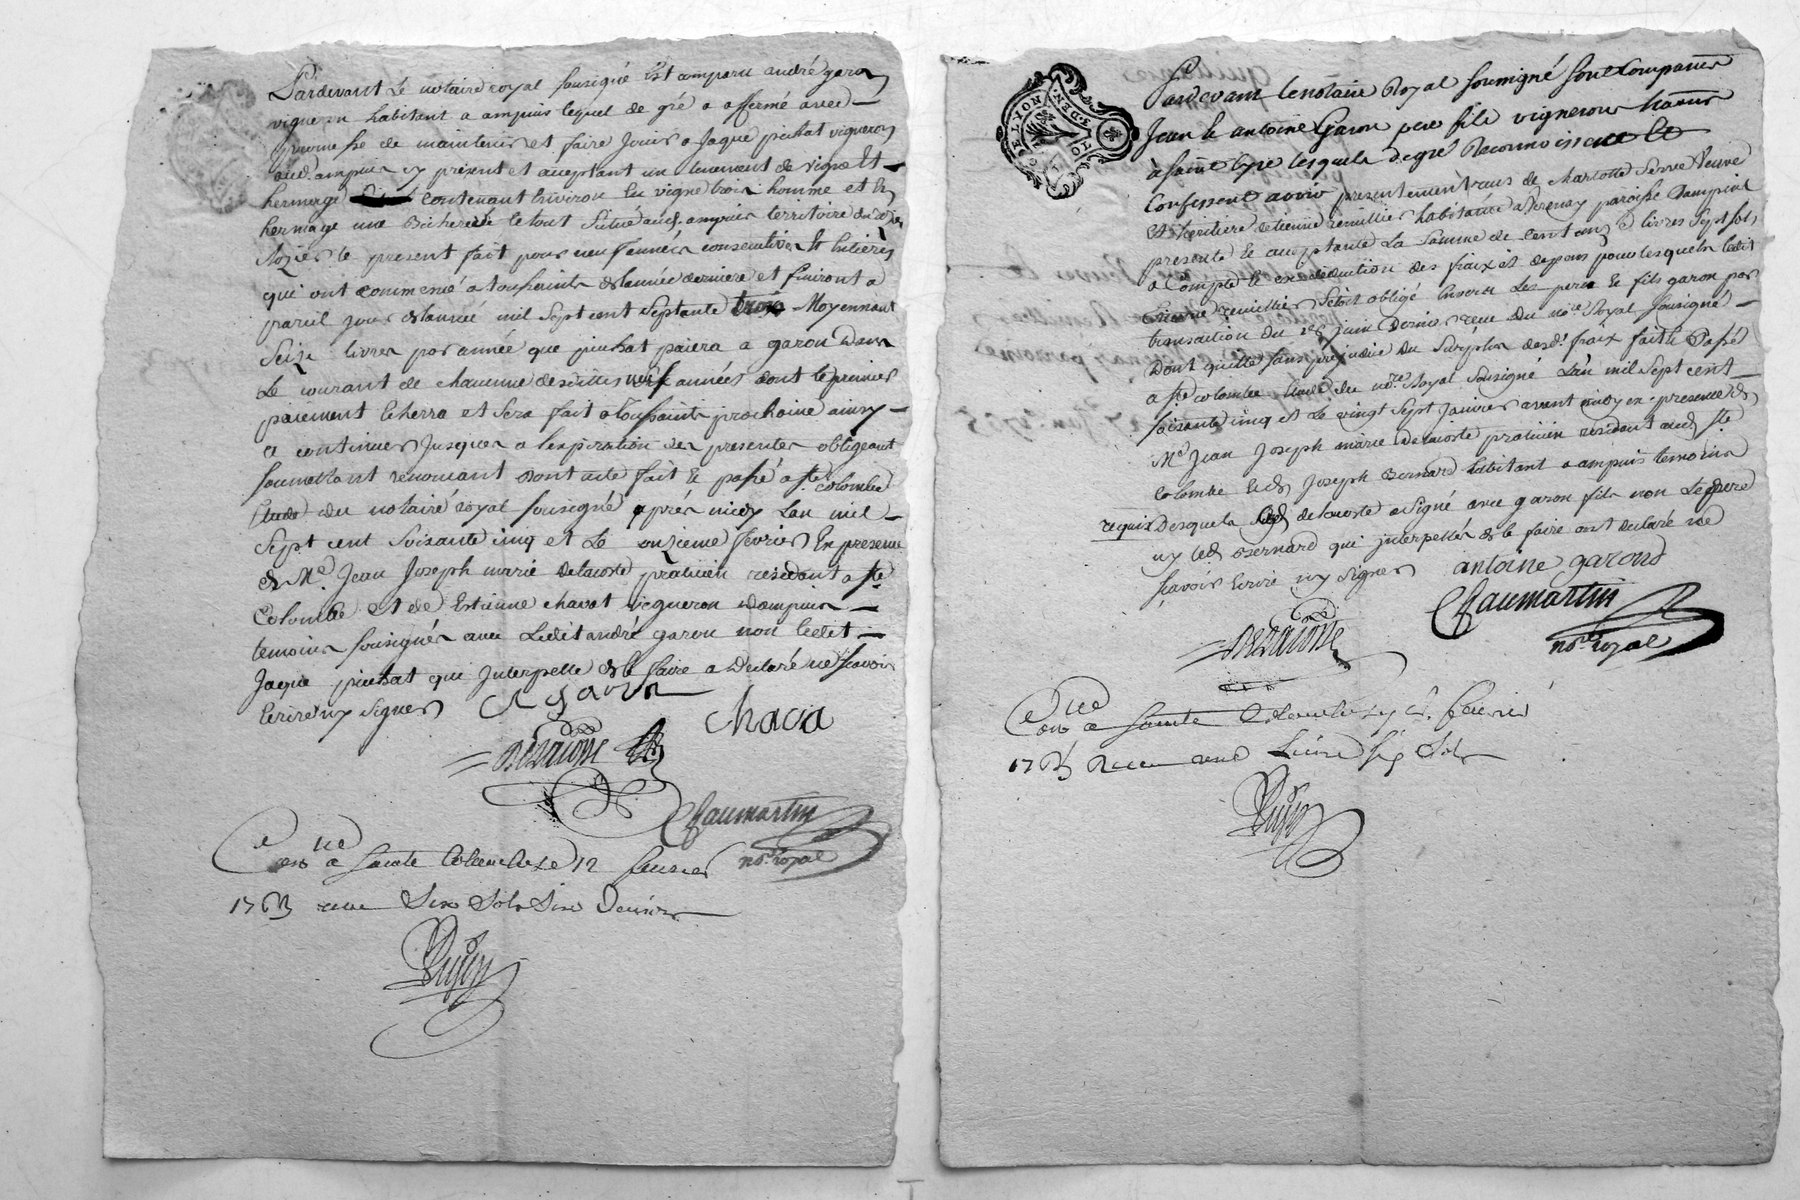 Pardevant Le notaire royal sousigné Est comparu andré garon
vigneron habitant a ampuis lequel de gré a affermé avec
promesse de maintenir et faire jouir a Jaque pichat vigneron
aud. ampuis cy présent et acceptant un tenement de vigne Et
hermage contenant Environ En vigne trois homme et En
hermage une Bicherée le tout Situé aud. ampuis territoire du
Rozier le present fait pour neuf années consecutives Et Entières
qui ont commencé a toussaints de lannée derniere et finiront a
pareil jour de lannée mil Sept cent Septante trois Moyennant
Seize livres par année que pichat paiera a garon Dans
Le courant de chacune desdittes neuf années dont le premier
paiement Echerra et Sera fait a toussaints prochaine ainsy
a continuer jusques a lexpiration des presentes obligeant
soumettant renonçant dont acte fait Et passé a ste colombe
Etude du notaire royal sousigné après midy Lan mil
Sept cent Soixante cinq et Le onzieme fevrier En presence
de Me. Jean Joseph marie Delacoste praticien residant a ste
Colombe et de Estienne chavat vigneron dampuis
temoins sousignés avec Ledit andré garon non Ledit
Jaque pichat qui Interpellé de le faire a declaré ne sçavoir
Ecrire ny signer
A Garon
chava
Delacoste
Chaumartin
nore royal
Conlé a Sainte Colombe le 12 fevrier
1765 receu Six Sols Six Deniers
Pardevant le notaire Royal soussigné sont Comparus
Jean & antoine Garon pere fils vignerons
à saint Cyre lesquels de gré Reconnoissent Et
Confessent avoir presentement reçus de Marlotte Serve Veuve
Et heritiere detienne remillier habitante a Verenay paroisse Dampuis
presente Et acceptante La Somme de Cent onze livres Sept sols
a Compte Et en deduction des fraix et depens pour lesquels ledit
Etienne remillier Setoit obligé Envers Les pere Et fils garon par
transaction du juin Dernier recue Du nore. Royal Sousigné
Dont quitte sans prejudice Du Surplus desd. fraix fait & Passé
a Ste colombe Etude du nore. Royal Sousigné Lan mil Sept cent
soixante cinq et Le vingt Sept Janvier avant midy en presence de
Me Jean Joseph marie Delacoste praticien residant aud. Ste
Colombe Et de Joseph Bernard habitant a ampuis temoins
requis Desquels Led. delacoste a Signé avec garon fils non Le pere
ny led. Bernard qui interpellés de le faire ont declaré ne
sçavoir Ecrire ny signer
antoine garond
Chaumartin
Delacoste
nore royal
Conlé a Sainte Colombe le fevrier
1765 Receu une Livre six Sols